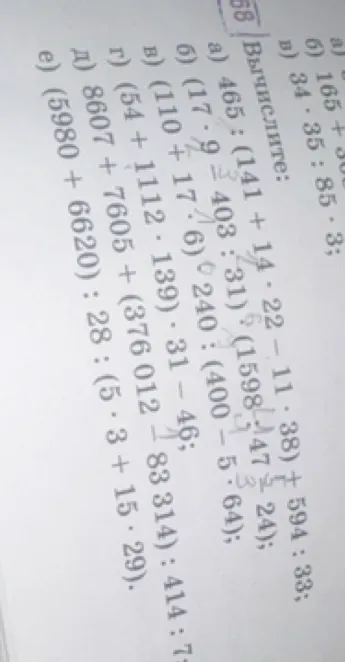 а)
б) 165 +
в) 34 · 35 : 85 · 3;
68 Вычислите:
а) 465 : (141 + 14 · 22 − 11 · 38) + 594 : 33;
б) (17 · 9 − 403 : 31) : (1598 : 47 − 24);
в) (110 + 17 · 6) · 240 : (400 − 5 · 64);
г) (54 + 1112 · 139) · 31 − 46;
д) 8607 + 7605 + (376 012 − 83 314) : 414 : 7;
е) (5980 + 6620) : 28 : (5 · 3 + 15 · 29).